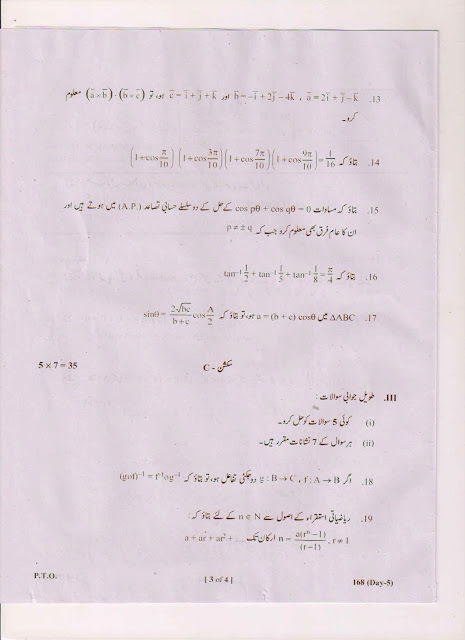 13. a̅ = 2i̅ + j̅ − k̅ ، b̅ = −i̅ + 2j̅ − 4k̅ اور c̅ = i̅ + j̅ + k̅ ہو، تو (a̅ × b̅) · (b̅ × c̅) معلوم
کرو۔
14. بتاؤ کہ (1+cos π/10) (1+cos 3π/10) (1+cos 7π/10) (1+cos 9π/10) = 1/16
15. بتاؤ کہ مساوات cos pθ + cos qθ = 0 کے حل کے دو سلسلے حسابی تصاعد (A.P.) میں ہوتے ہیں اور
ان کا عام فرق بھی معلوم کرو جب کہ p ≠ ± q
16. بتاؤ کہ tan⁻¹ 1/2 + tan⁻¹ 1/5 + tan⁻¹ 1/8 = π/4
17. ΔABC میں a = (b + c) cosθ ہو، تو بتاؤ کہ sinθ = 2√bc/(b+c) cos A/2
سکشن - C 5 × 7 = 35
III. طویل جوابی سوالات :
(i) کوئی 5 سوالات کو حل کرو۔
(ii) ہر سوال کے 7 نشانات مقرر ہیں۔
18. اگر f : A → B ، g : B → C دو چکنی تفاعل ہو، تو بتاؤ کہ (gof)⁻¹ = f⁻¹og⁻¹
19. ریاضیاتی استقراء کے اصول سے n ∈ N کے لئے بتاؤ کہ :
a + ar + ar² + ... ارکان تک n = a(rⁿ − 1)/(r−1) , r ≠ 1
P.T.O. [ 3 of 4 ] 168 (Day-5)